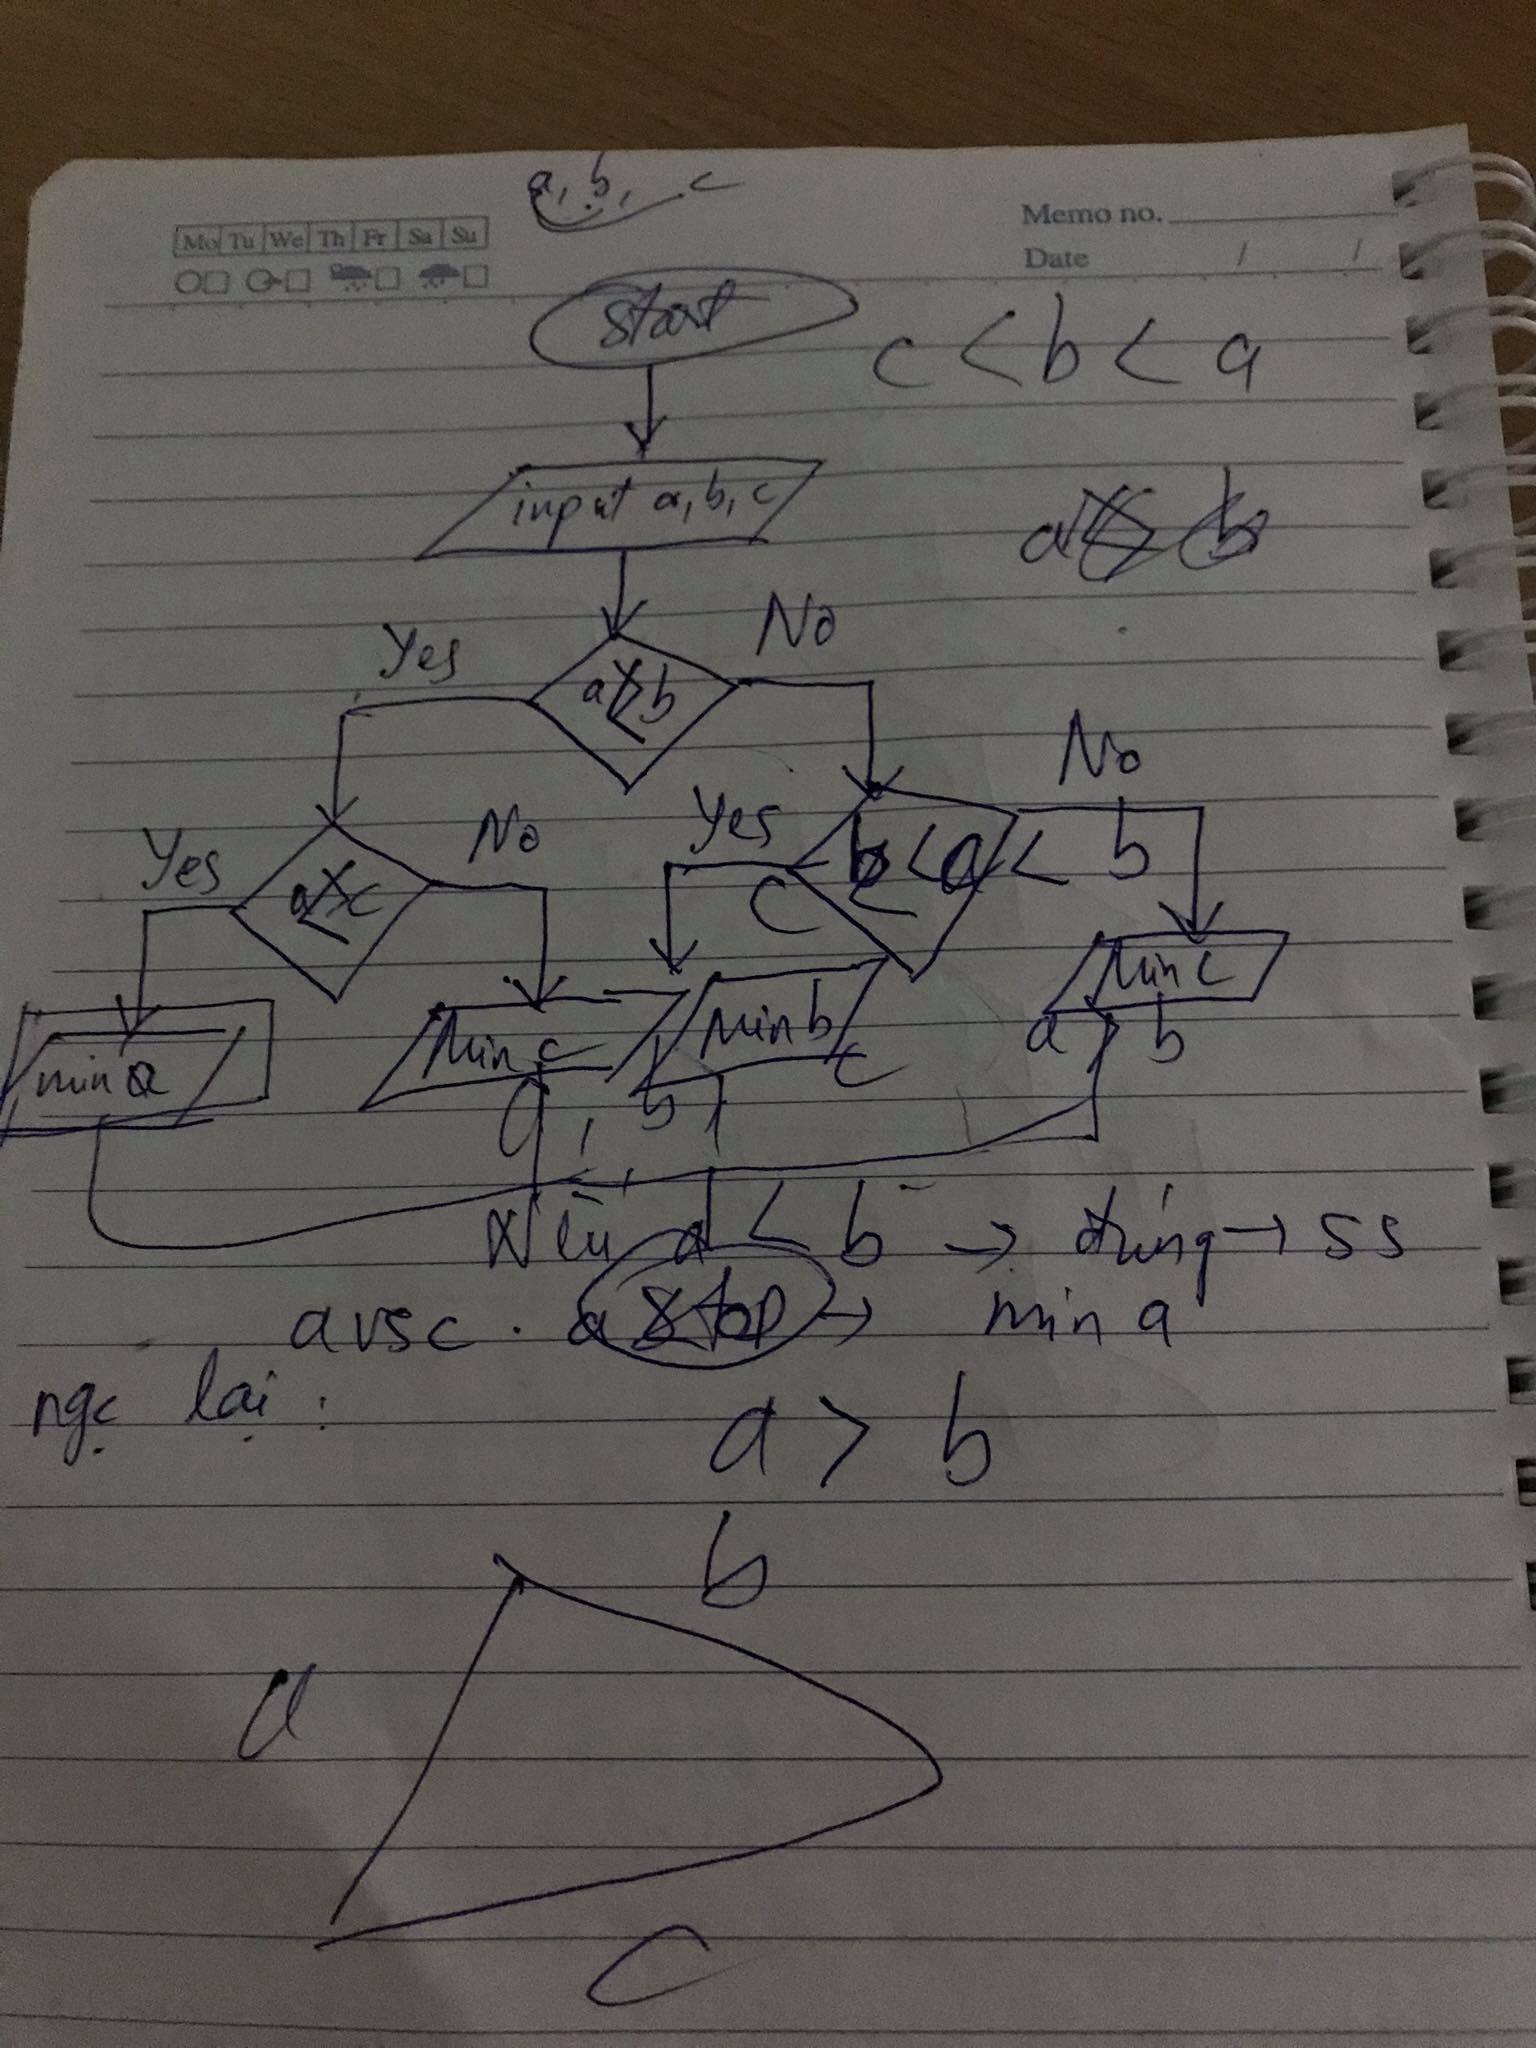 a, b, c
Mo Tu We Th Fr Sa Su
Memo no.
Date / /
start
c < b < a
input a, b, c
Yes
No
a < b
No
Yes
No
Yes
a < c
c < a < b
min a
Min c
Min b
Min c
a > b
a, b,
c
Nếu a < b → đúng → ss
a vs c . a
stop
→ min a
ngc lại :
a > b
b
a
c